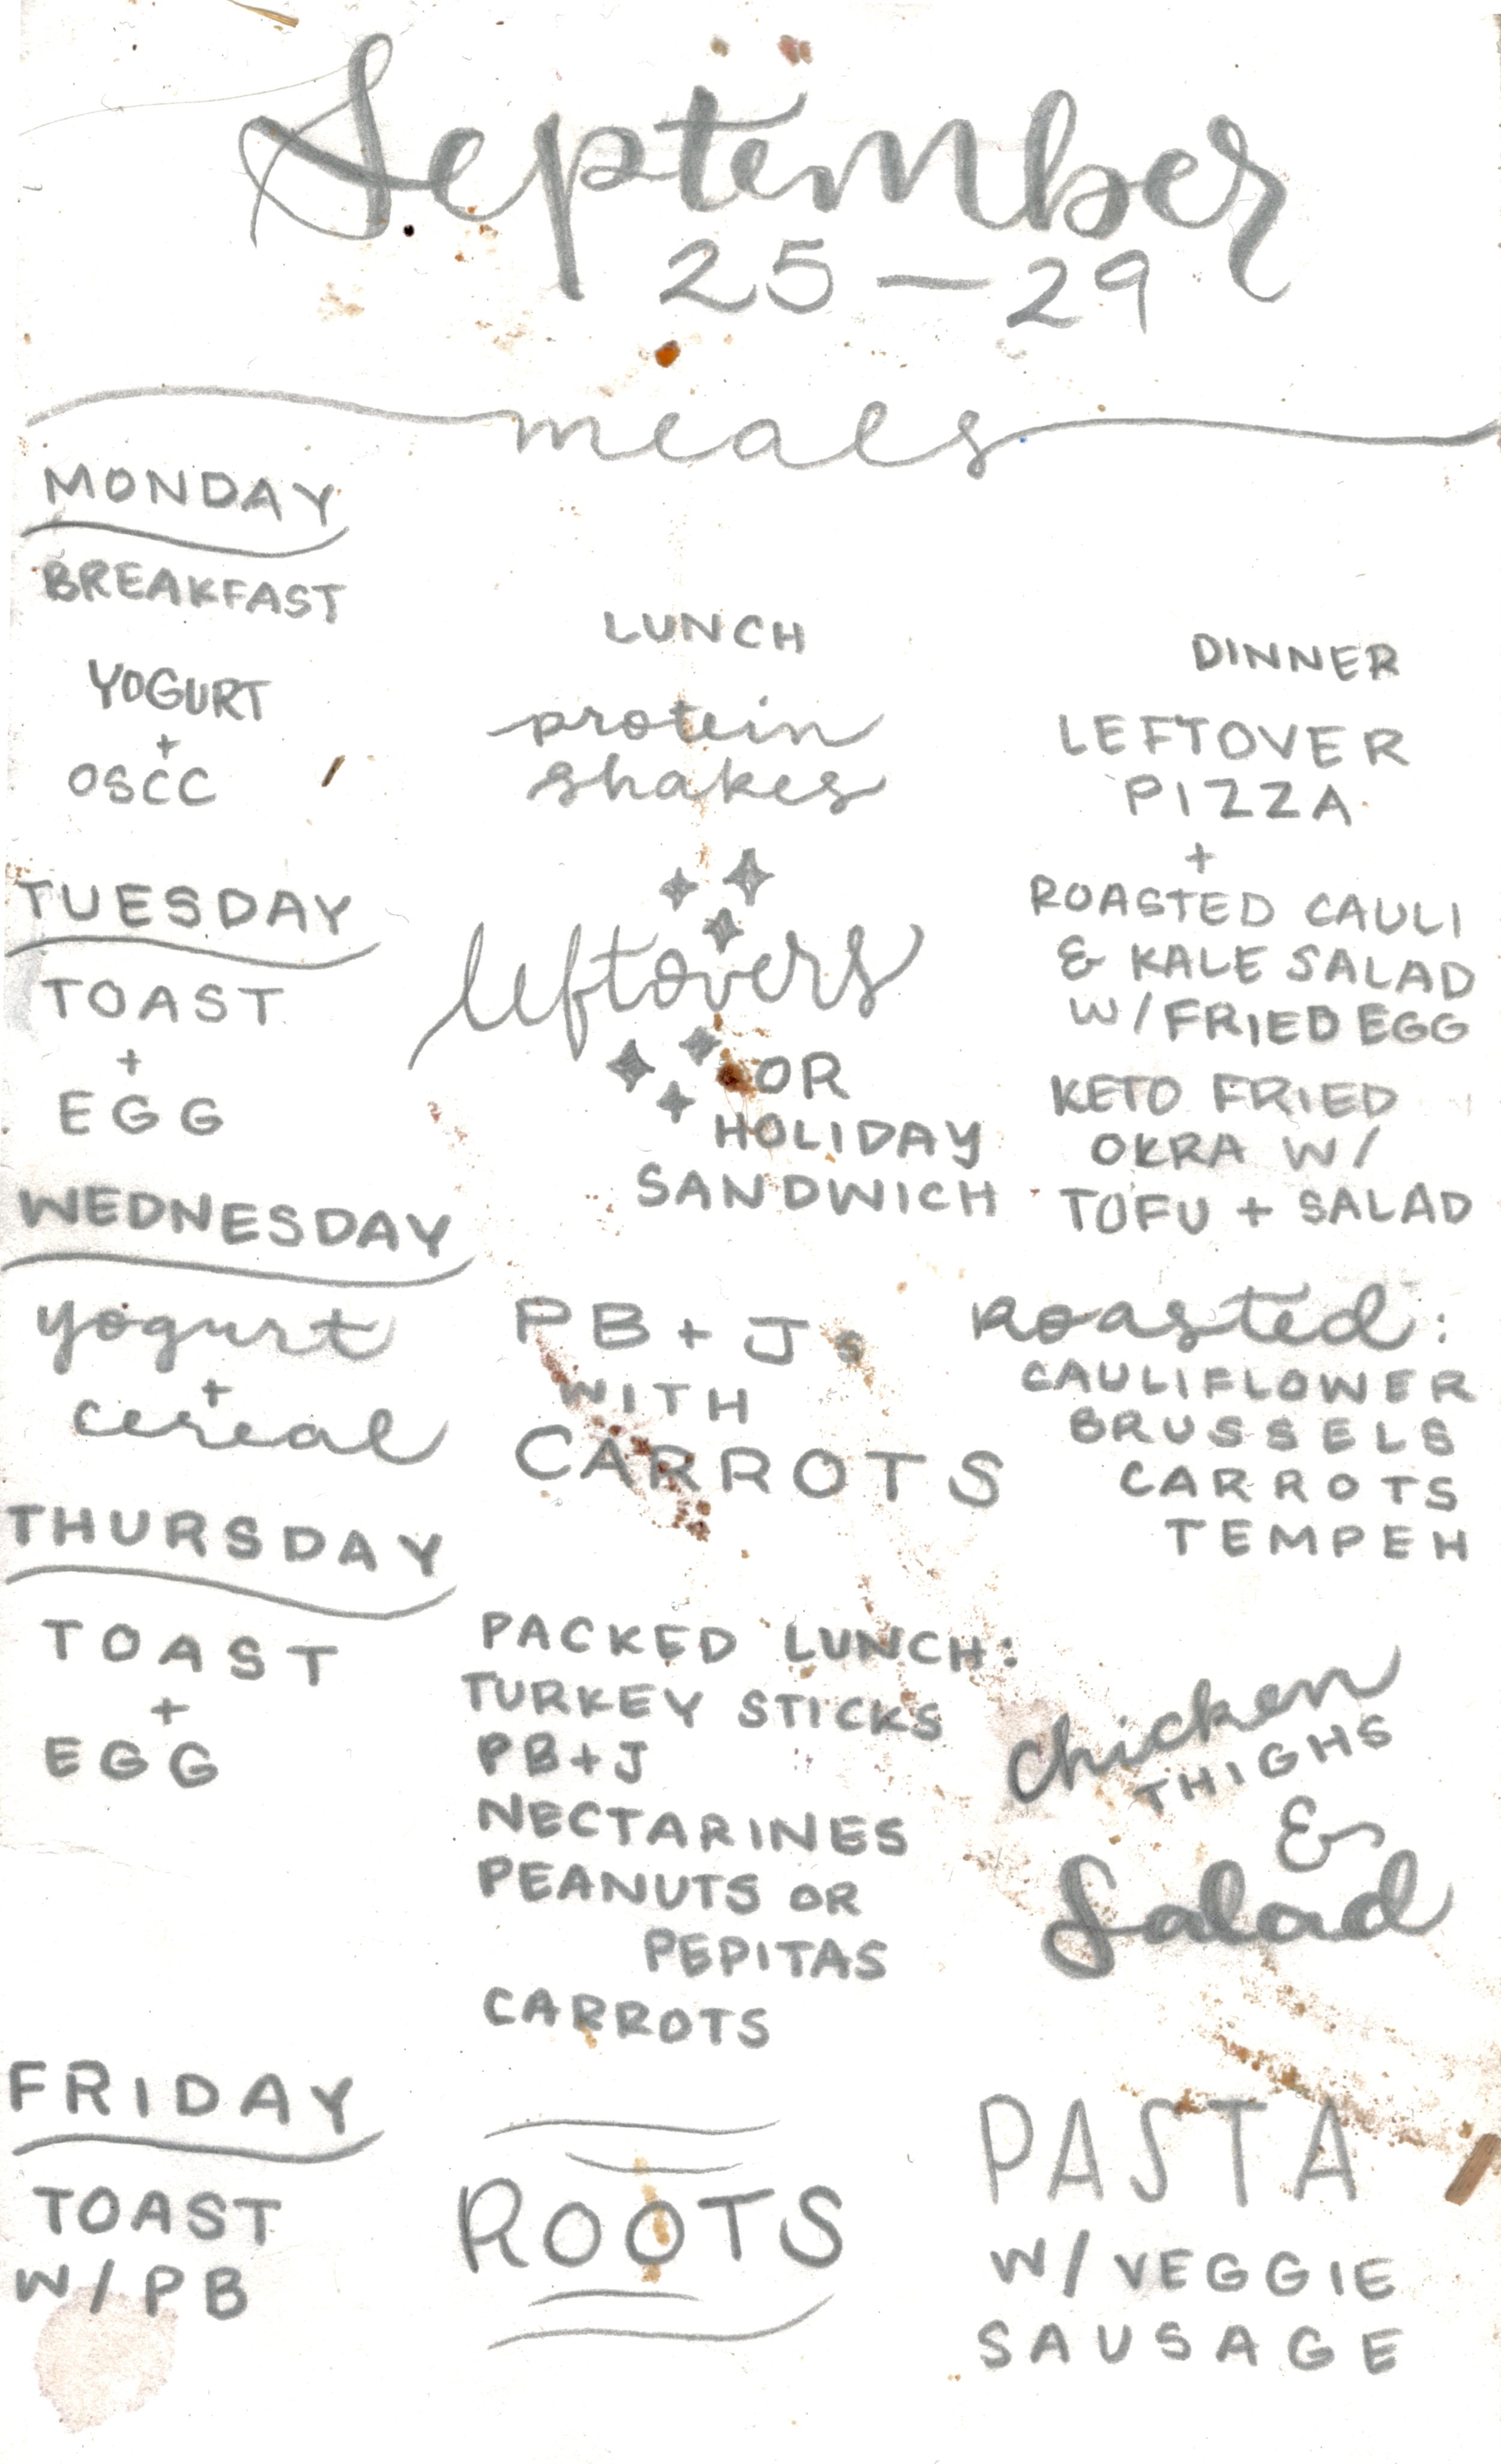 September
25 — 29
meals
MONDAY
BREAKFAST
LUNCH
DINNER
YOGURT
+
OSCC
protein
shakes
LEFTOVER
PIZZA
+
ROASTED CAULI
& KALE SALAD
W/ FRIED EGG
TUESDAY
TOAST
+
EGG
leftovers
OR
HOLIDAY
SANDWICH
KETO FRIED
OKRA W/
TOFU + SALAD
WEDNESDAY
yogurt
+
cereal
PB + Js
WITH
CARROTS
Roasted:
CAULIFLOWER
BRUSSELS
CARROTS
TEMPEH
THURSDAY
TOAST
+
EGG
PACKED LUNCH:
TURKEY STICKS
PB+J
NECTARINES
PEANUTS OR
PEPITAS
CARROTS
chicken
THIGHS
&
Salad
FRIDAY
TOAST
W/ PB
ROOTS
PASTA
W/ VEGGIE
SAUSAGE